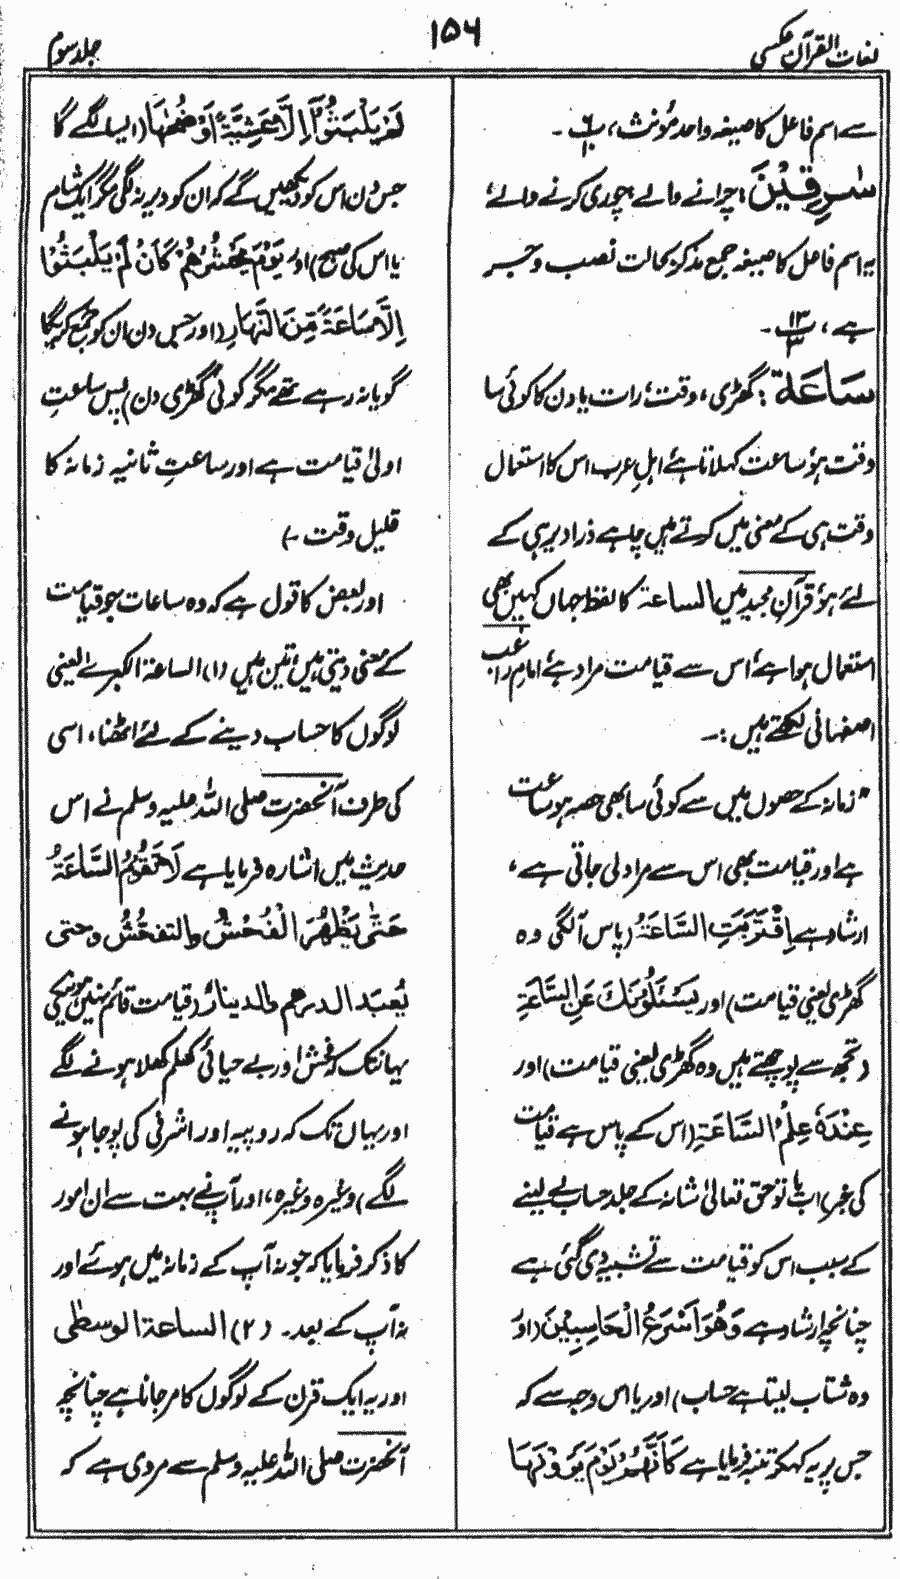 لغات القرآن عکسی
۱۵۶
جلد سوم
سے اسم فاعل کا صیغہ واحد مؤنث، پ ۔
سٰرِقِیْنَ : چرانے والے، چوری کرنے والے،
یہ اسم فاعل کا صیغہ جمع مذکر بحالت نصب و جر
ہے، پ ۱۳ ۳ ۔
سَاعَة : گھڑی، وقت، رات یا دن کا کوئی سا
وقت ہو ساعت کہلاتا ہے اہلِ عرب اس کا استعمال
وقت ہی کے معنی میں کرتے ہیں چاہے ذرا دیر ہی کے
لئے ہو، قرآن مجید میں الساعة کا لفظ جہاں کہیں بھی
استعمال ہوا ہے اس سے قیامت مراد ہے امام راغب
اصفہانی لکھتے ہیں :۔
"زمانہ کے حصوں میں سے کوئی سا بھی حصہ ہو ساعت
ہے اور قیامت بھی اس سے مراد لی جاتی ہے،
ارشاد ہے اِقْتَرَبَتِ السَّاعَةُ (پاس آلگی وہ
گھڑی یعنی قیامت) اور یَسْئَلُوْنَكَ عَنِ السَّاعَةِ
(تجھ سے پوچھتے ہیں وہ گھڑی یعنی قیامت) اور
عِنْدَهٗ عِلْمُ السَّاعَةِ (اس کے پاس ہے قیامت
کی خبر) اب یا تو حق تعالیٰ شانہ کے جلد حساب لے لینے
کے سبب اس کو قیامت سے تشبیہ دی گئی ہے
چنانچہ ارشاد ہے وَهُوَ اَسْرَعُ الْحَاسِبِیْنَ (اور
وہ شتاب لیتا ہے حساب) اور یا اس وجہ سے کہ
جس پر یہ کہہ کر تنبیہ فرمایا ہے كَاَنَّهُمْ یَوْمَ یَرَوْنَهَا
لَمْ یَلْبَثُوْٓا اِلَّا عَشِیَّةً اَوْ ضُحٰهَا (ایسا لگے گا
جس دن اس کو دیکھیں گے کہ ان کو دیر نہ لگی مگر ایک شام
یا اس کی صبح) اور یَوْمَ یَحْشُرُهُمْ كَاَنْ لَّمْ یَلْبَثُوْٓا
اِلَّا سَاعَةً مِّنَ النَّهَارِ (اور جس دن ان کو جمع کریگا
گویا نہ رہے تھے مگر کوئی گھڑی دن) پس ساعتِ
اولیٰ قیامت ہے اور ساعتِ ثانیہ زمانہ کا
قلیل وقت ۔)
اور بعض کا قول ہے کہ وہ ساعات جو قیامت
کے معنی دیتی ہیں تین ہیں (۱) الساعة الکبریٰ یعنی
لوگوں کا حساب دینے کے لئے اٹھنا، اسی
کی طرف آنحضرت صلی اللہ علیہ وسلم نے اس
حدیث میں اشارہ فرمایا ہے لَا تَقُوْمُ السَّاعَةُ
حَتّٰی یَظْهَرَ الْفُحْشُ والتفحّشُ وحتی
یُعبَدَ الدرهم والدینارُ (قیامت قائم نہیں ہونیکی
یہانتک کہ فحش اور بے حیائی کھلم کھلا ہونے لگے
اور یہاں تک کہ روپیہ اور اشرفی کی پوجا ہونے
لگے) وغیرہ وغیرہ، اور آپ نے بہت سے ان امور
کا ذکر فرمایا کہ جو نہ آپ کے زمانہ میں ہوئے اور
نہ آپ کے بعد۔ (۲) الساعة الوسطیٰ
اور یہ ایک قرن کے لوگوں کا مرجانا ہے چنانچہ
آنحضرت صلی اللہ علیہ وسلم سے مروی ہے کہ